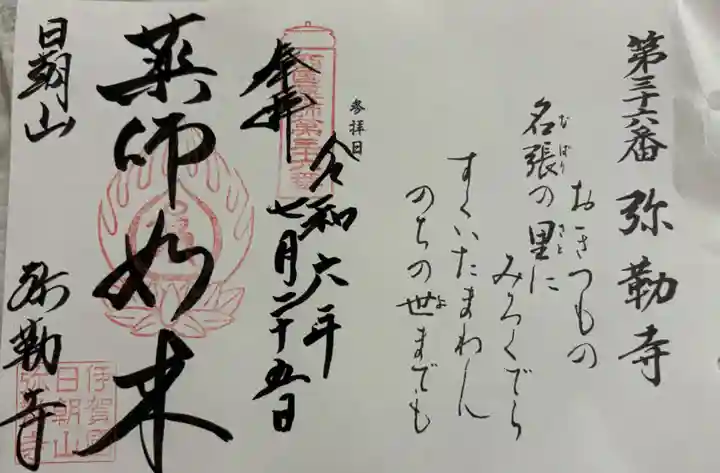 第三十六番 弥勒寺
おきつもの
名張の里に
なばり
さと
みろくでら
すくいたまわしん
のちの世までも
よ
参拝日
奉拝
令和六年
七月二十五日
西国薬師第三十六番
薬師如来
日朝山
弥勒寺
伊賀国
日朝山
弥勒寺